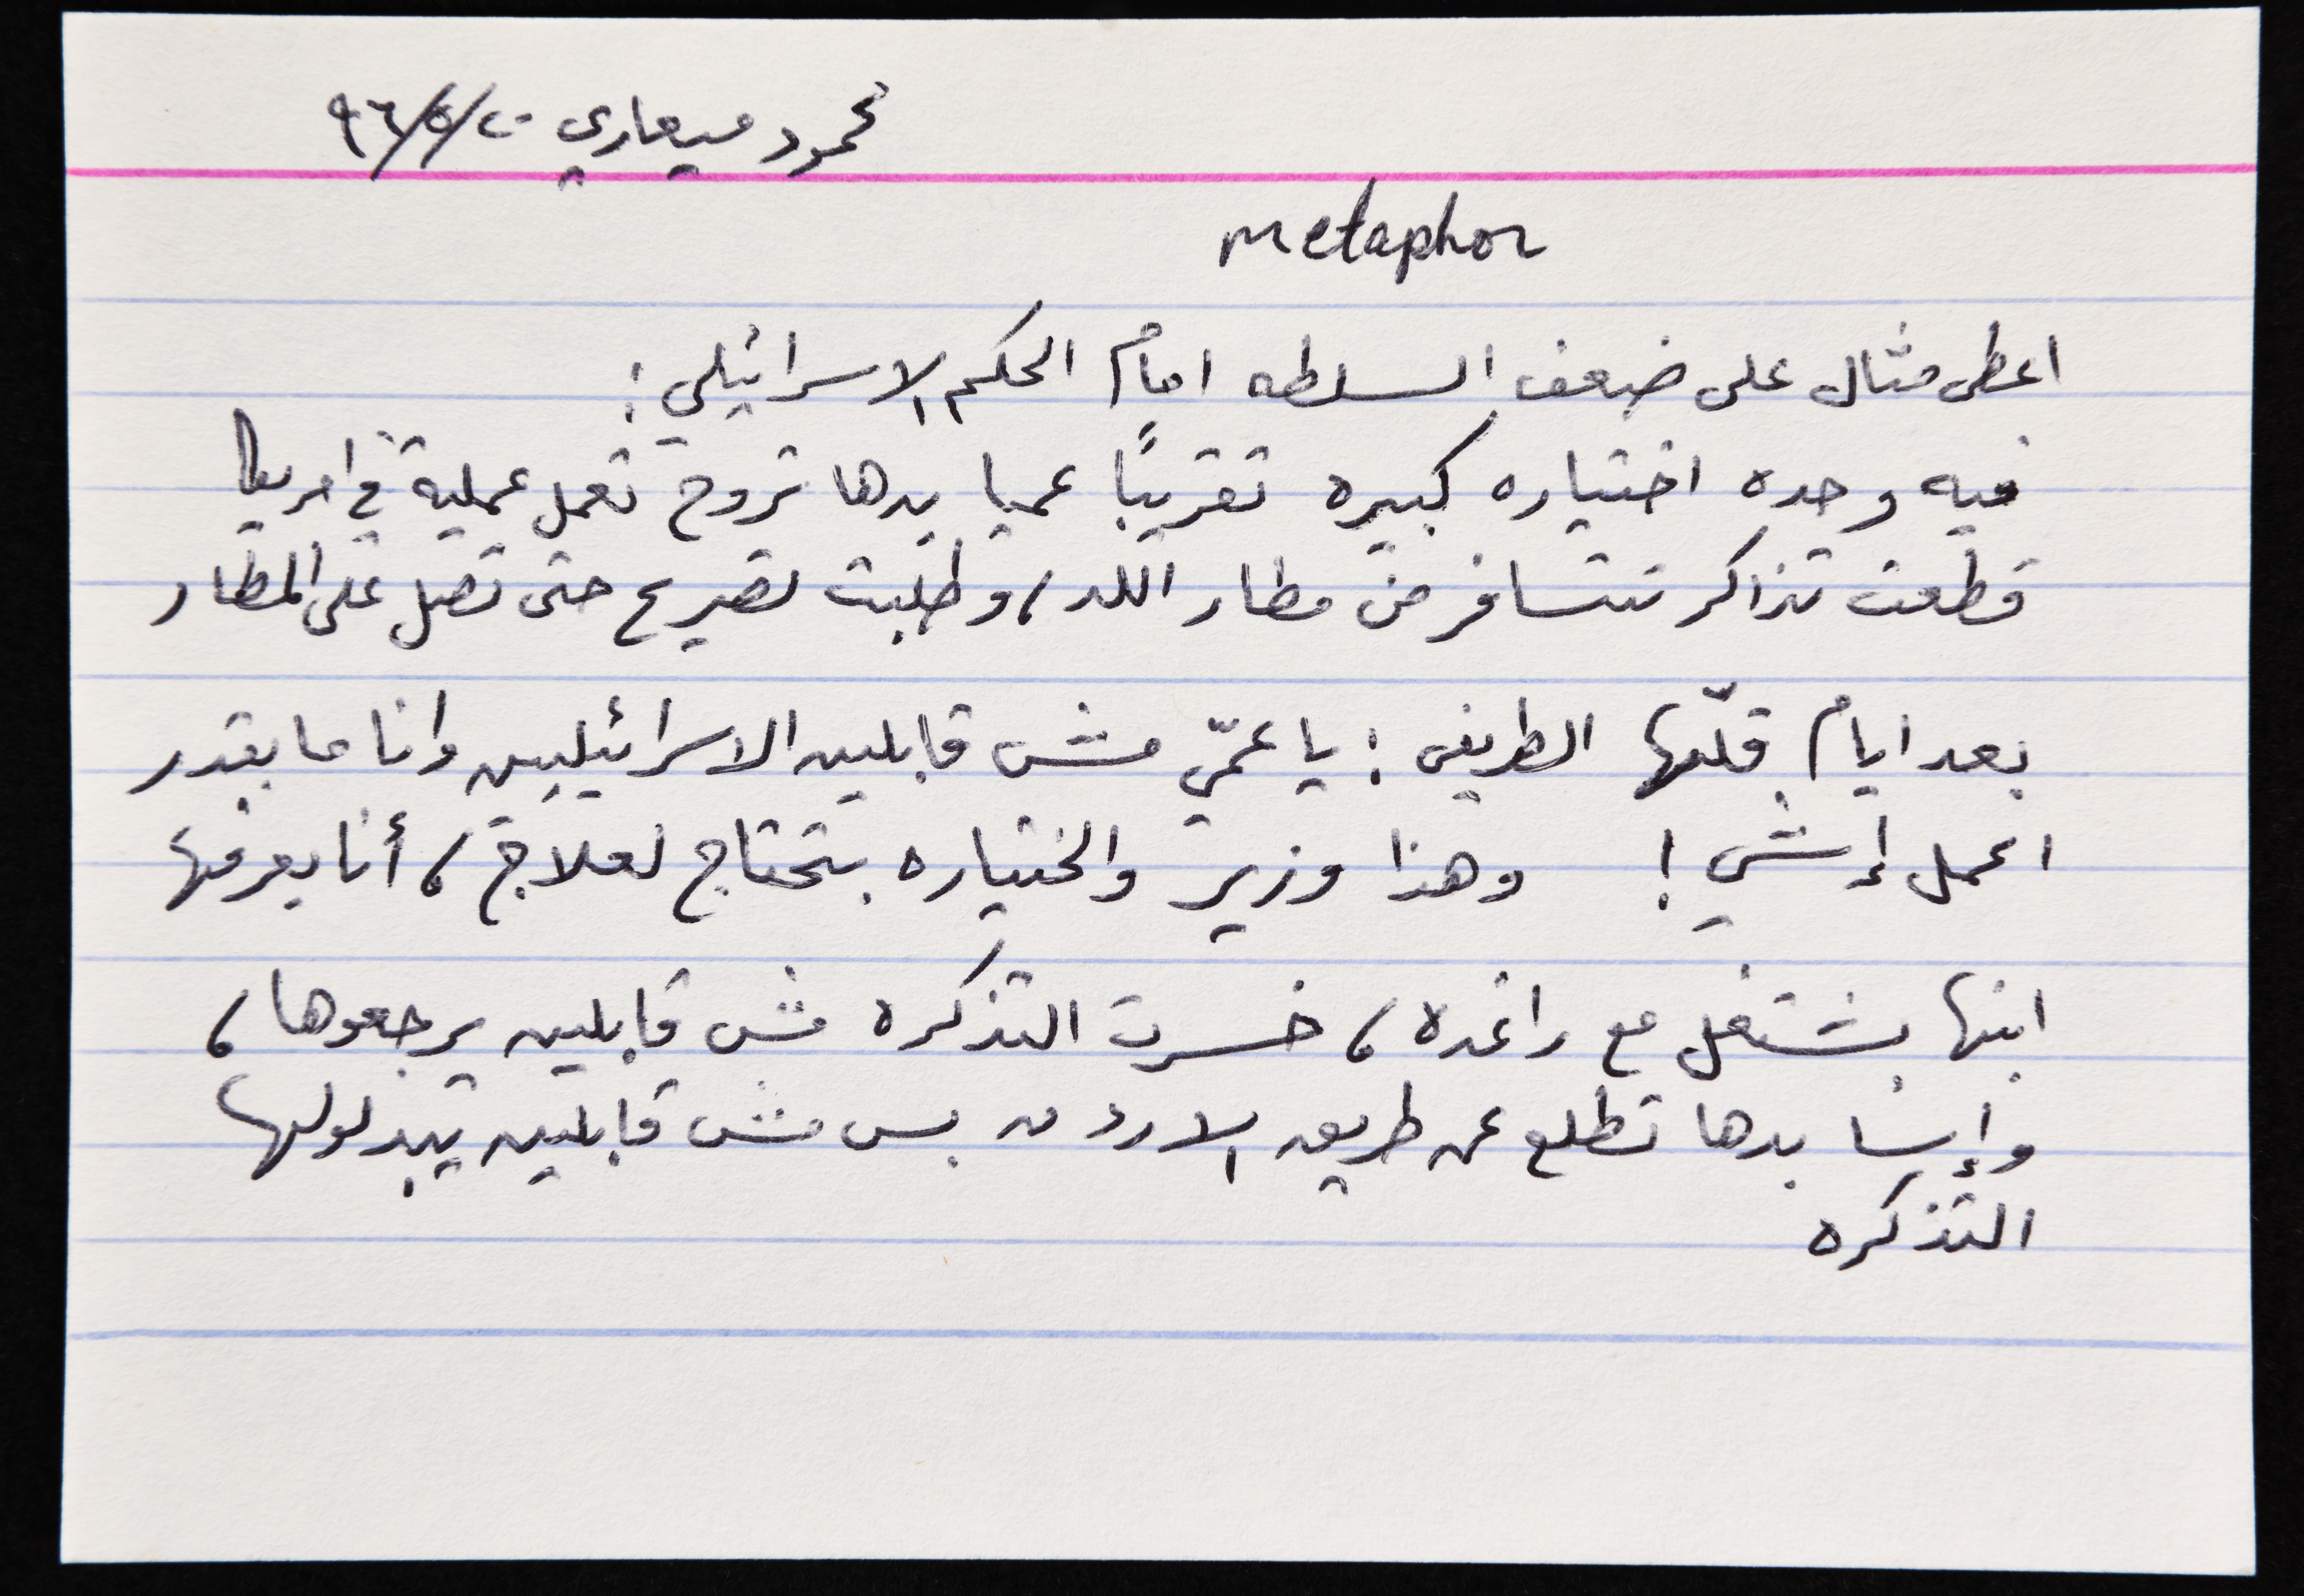 محمود ميعاري ٩٦/٥/٢٠
metaphor
اعطى مثال على ضعف السلطه امام الحكم الاسرائيلي :
فيه وحده اختياره كبيره تقريبًا عميا بدها تروح تعمل عملية في امريكا
قطعت تذاكر تتسافر من مطار اللد، وطلبت تصريح حتى تصل على المطار
بعد ايام قلّها الطريفي : يا عمّي مش قابلين الاسرائيليين وانا ما بقدر
اعمل إشي ! وهذا وزير والختياره بتحتاج لعلاج، أنا بعرفها
ابنها بشتغل مع راغده، خسرت التذكره مش قابلين يرجعوها،
وإسا بدها تطلع عن طريق الاردن بس مش قابلين يبدلولها
التذكره